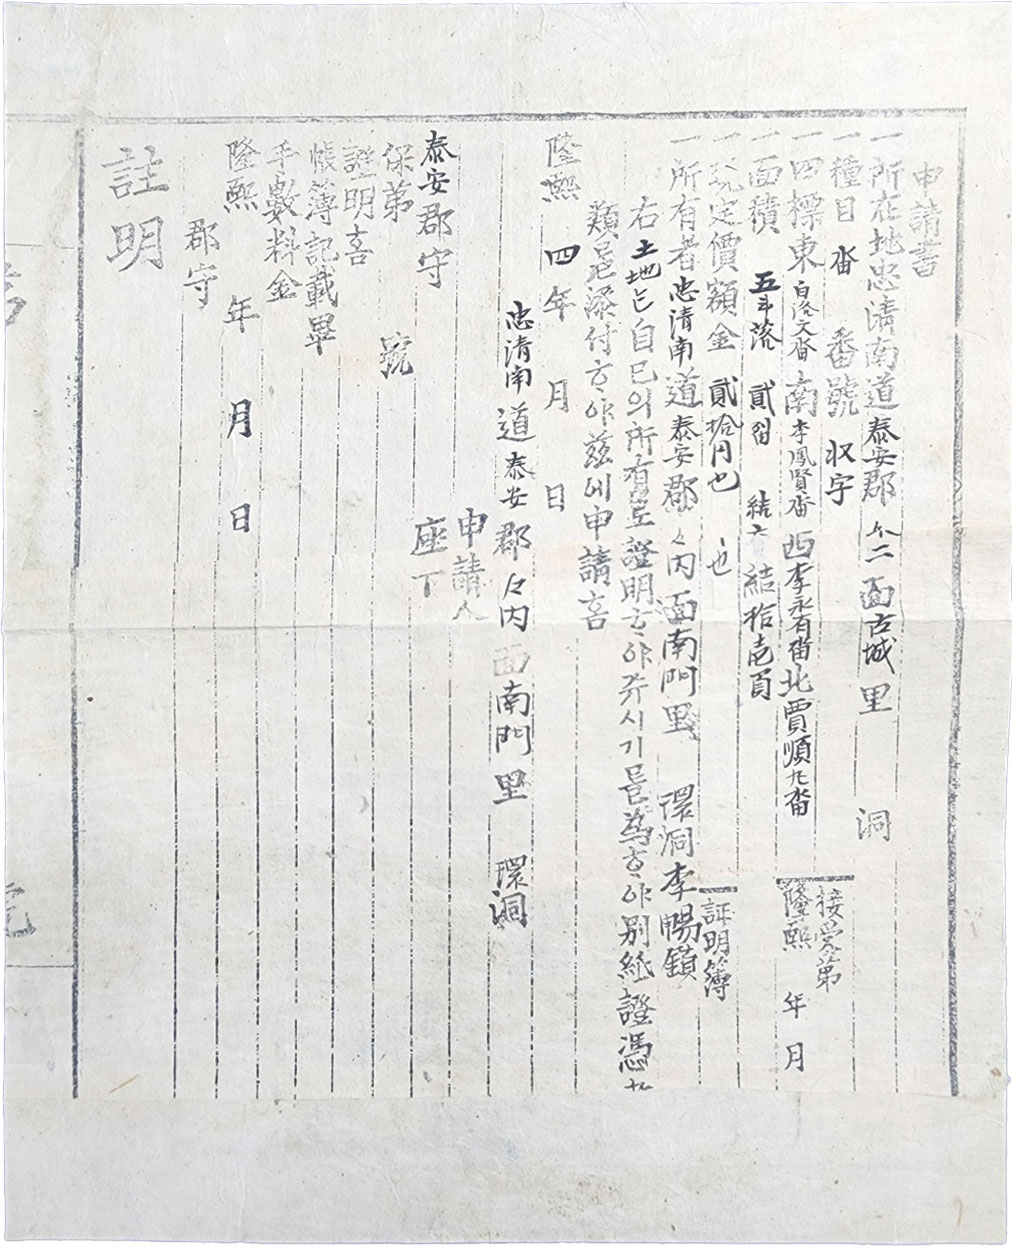 申請書
一所在地忠淸南道泰安郡 尒二 面古城 里 洞
一種目 畓 番號 収字
一四標東 白洛文畓 南 李鳳賢畓 西 李永有畓 北 賈順九畓
一面積 五斗落 貳畓 結六 結拾壱頁
一現定價額金 貳拾円也 也
一所有者忠淸南道泰安郡々內面南門里 環洞李暢鎖
右土地는自己의所有로證明하야주시기를爲하야別紙證憑
類를添付하야玆에申請喜
隆熙 四年 月 日
忠淸南道泰安郡々內面南門里 環洞
申請人
泰安郡守 座下
保第 號
證明喜
帳簿記載畢
手數料金
隆熙 年 月 日
郡守
註明
接受第
隆熙 年 月
証明簿